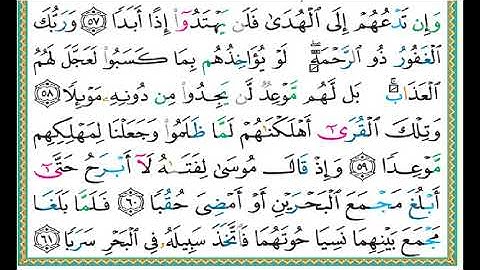 وَإِن تَدْعُهُمْ إِلَى الْهُدَىٰ فَلَن يَهْتَدُوا إِذًا أَبَدًا ٥٧ وَرَبُّكَ
الْغَفُورُ ذُو الرَّحْمَةِ لَوْ يُؤَاخِذُهُم بِمَا كَسَبُوا لَعَجَّلَ لَهُمُ
الْعَذَابَ بَل لَّهُم مَّوْعِدٌ لَّن يَجِدُوا مِن دُونِهِ مَوْئِلًا ٥٨
وَتِلْكَ الْقُرَىٰ أَهْلَكْنَاهُمْ لَمَّا ظَلَمُوا وَجَعَلْنَا لِمَهْلِكِهِم
مَّوْعِدًا ٥٩ وَإِذْ قَالَ مُوسَىٰ لِفَتَاهُ لَا أَبْرَحُ حَتَّىٰ
أَبْلُغَ مَجْمَعَ الْبَحْرَيْنِ أَوْ أَمْضِيَ حُقُبًا ٦٠ فَلَمَّا بَلَغَا
مَجْمَعَ بَيْنِهِمَا نَسِيَا حُوتَهُمَا فَاتَّخَذَ سَبِيلَهُ فِي الْبَحْرِ سَرَبًا ٦١